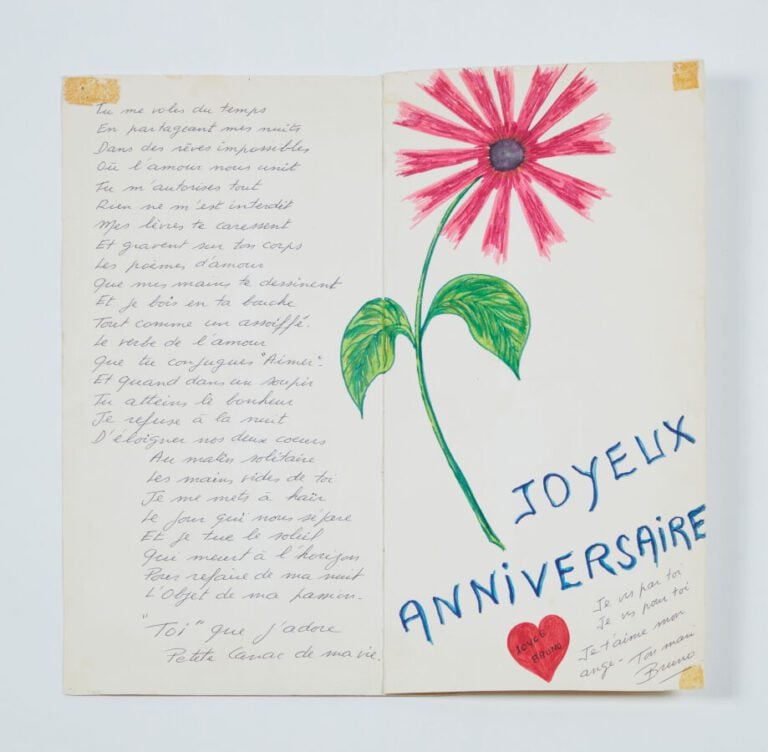 Tu me voles du temps
En partageant mes nuits
Dans des rêves impossibles
Où l'amour nous unit
Tu m'autorises tout
Rien ne m'est interdit
Mes lèvres te caressent
Et gravent sur ton corps
Les poèmes d'amour
Que mes mains te dessinent
Et je bois en ta bouche
Tout comme un assoiffé.
Le verbe de l'amour
Que tu conjugues "Aimer".
Et quand dans un soupir
Tu atteins le bonheur
Je refuse à la nuit
D'éloigner nos deux coeurs
Au matin solitaire
Les mains vides de toi
Je me mets à haïr
Le Jour qui nous sépare
Et je tue le soleil
Qui meurt à l'horizon
Pour refaire de ma nuit
L'Objet de ma passion.
"Toi" que j'adore
Petite Canac de ma vie.
JOYEUX
ANNIVERSAIRE
JOYCE
BRUNO
Je vis par toi
Je vis pour toi
Je t'aime mon
ange - Ton mari
Bruno